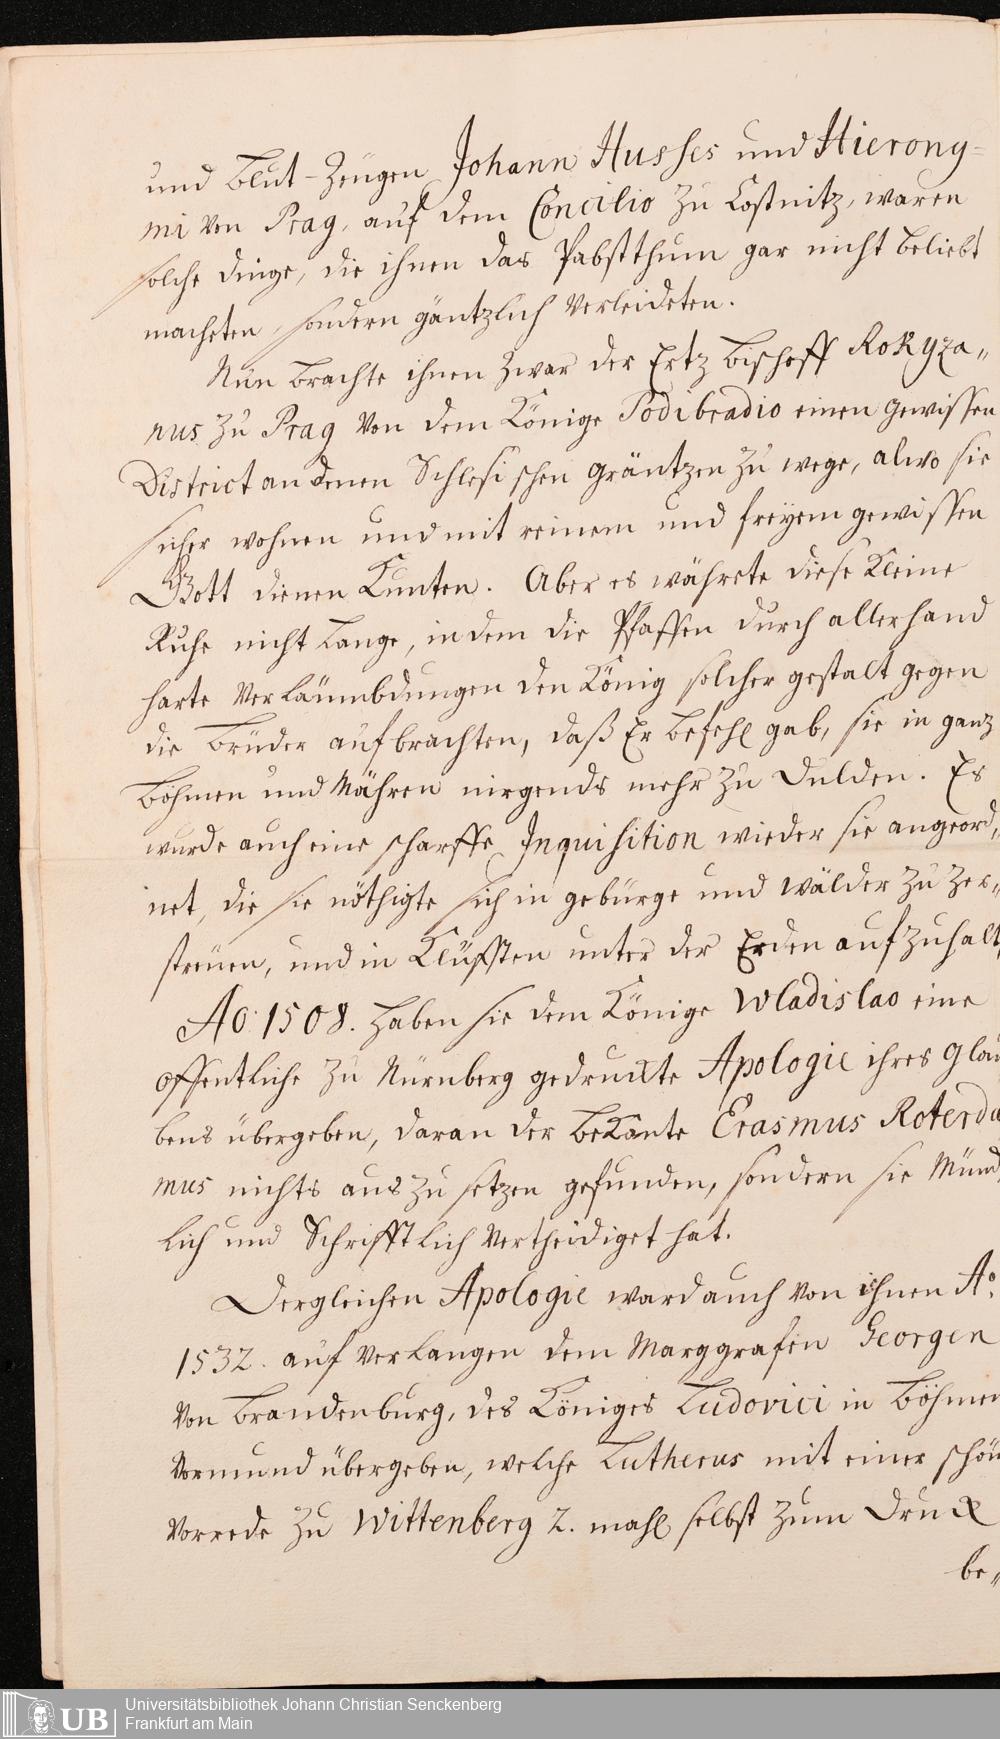 und Blut-Zeugen Johann Husses und Hierony-
mi von Prag, auf dem Concilio zu Costnitz, waren
solche dinge, die ihnen das Pabstthum gar nicht beliebt
macheten, sondern gäntzlich verleideten.
Nun brachte ihnen zwar der Ertz Bischoff Rokyza„
nus zu Prag von dem Könige Podibradio einen gewissen
District an denen Schlesischen gräntzen zu wege, alwo sie
sicher wohnen und mit reinem und freyem gewissen
Gott dienen Kunten. Aber es währete diese Kleine
Ruhe nicht lange, indem die Pfaffen durch allerhand
harte Verläumbdungen den König solcher gestalt gegen
die Brüder aufbrachten, daß Er befehl gab, sie in ganz
Böhmen und Mähren nirgends mehr zu dulden. Es
wurde auch eine scharffe Inquisition wieder sie angeord„
net, die sie nöthigte sich in gebürge und Wälder zu zer„
streuen, und in Klüfften unter der Erden aufzuhalt
Ao: 1508. haben sie dem Könige Wladislao eine
offentliche zu Nürnberg gedruckte Apologie ihres Glau
bens übergeben, daran der bekante Erasmus Roterda
mus nichts auszusetzen gefunden, sondern sie Münd
lich und Schrifftlich vertheidiget hat.
Dergleichen Apologie ward auch von ihnen Ao.
1532. auf Verlangen dem Marggrafen Georgen
von Brandenburg, des Königes Ludovici in Böhmen
Vormund übergeben, welche Lutherus mit einer schön
Vorrede zu Wittenberg 2. mahl selbst zum Druck
be„
UB
Universitätsbibliothek Johann Christian Senckenberg
Frankfurt am Main